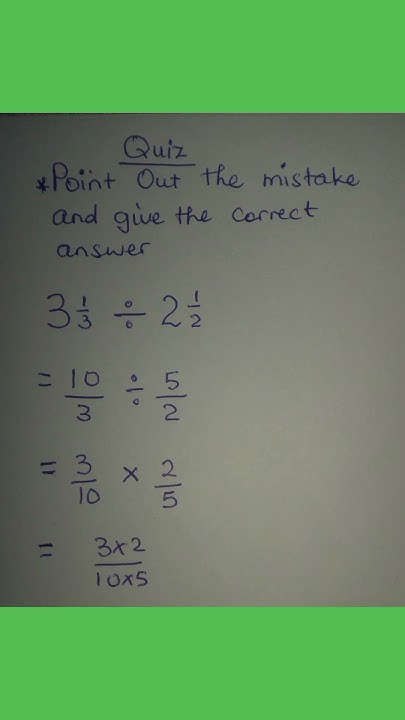 Quiz
*Point Out the mistake
and give the correct
answer
3 1/3 ÷ 2 1/2
= 10/3 ÷ 5/2
= 3/10 × 2/5
= 3×2/10×5